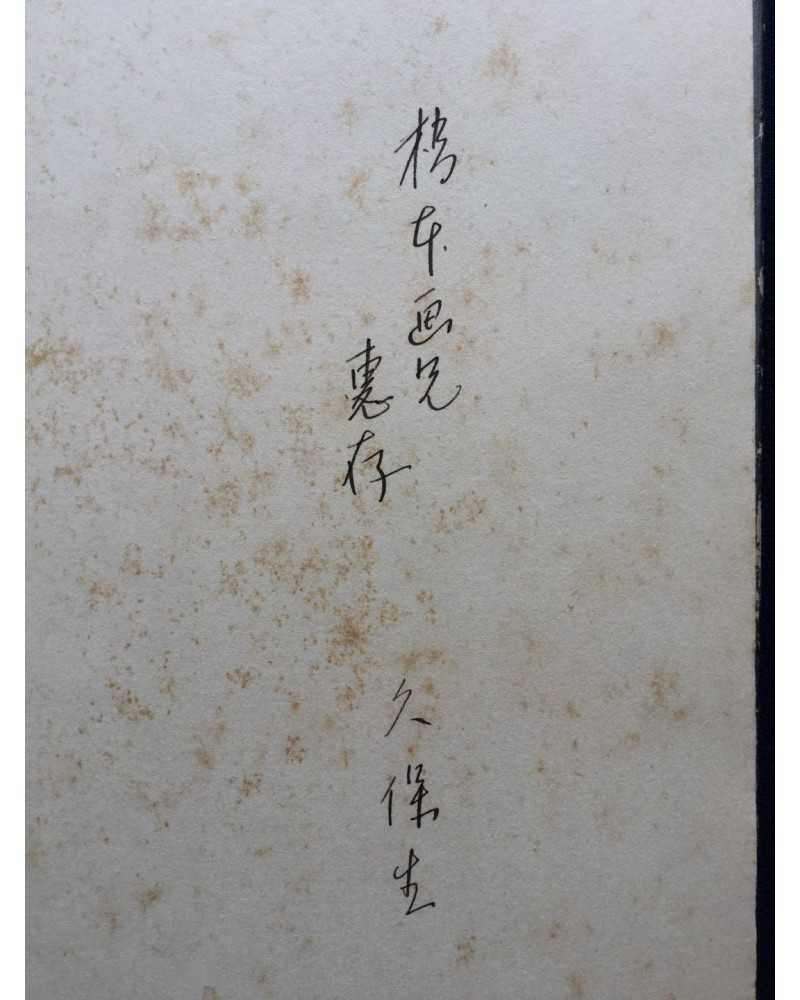 橋本画兄
惠存
久保生